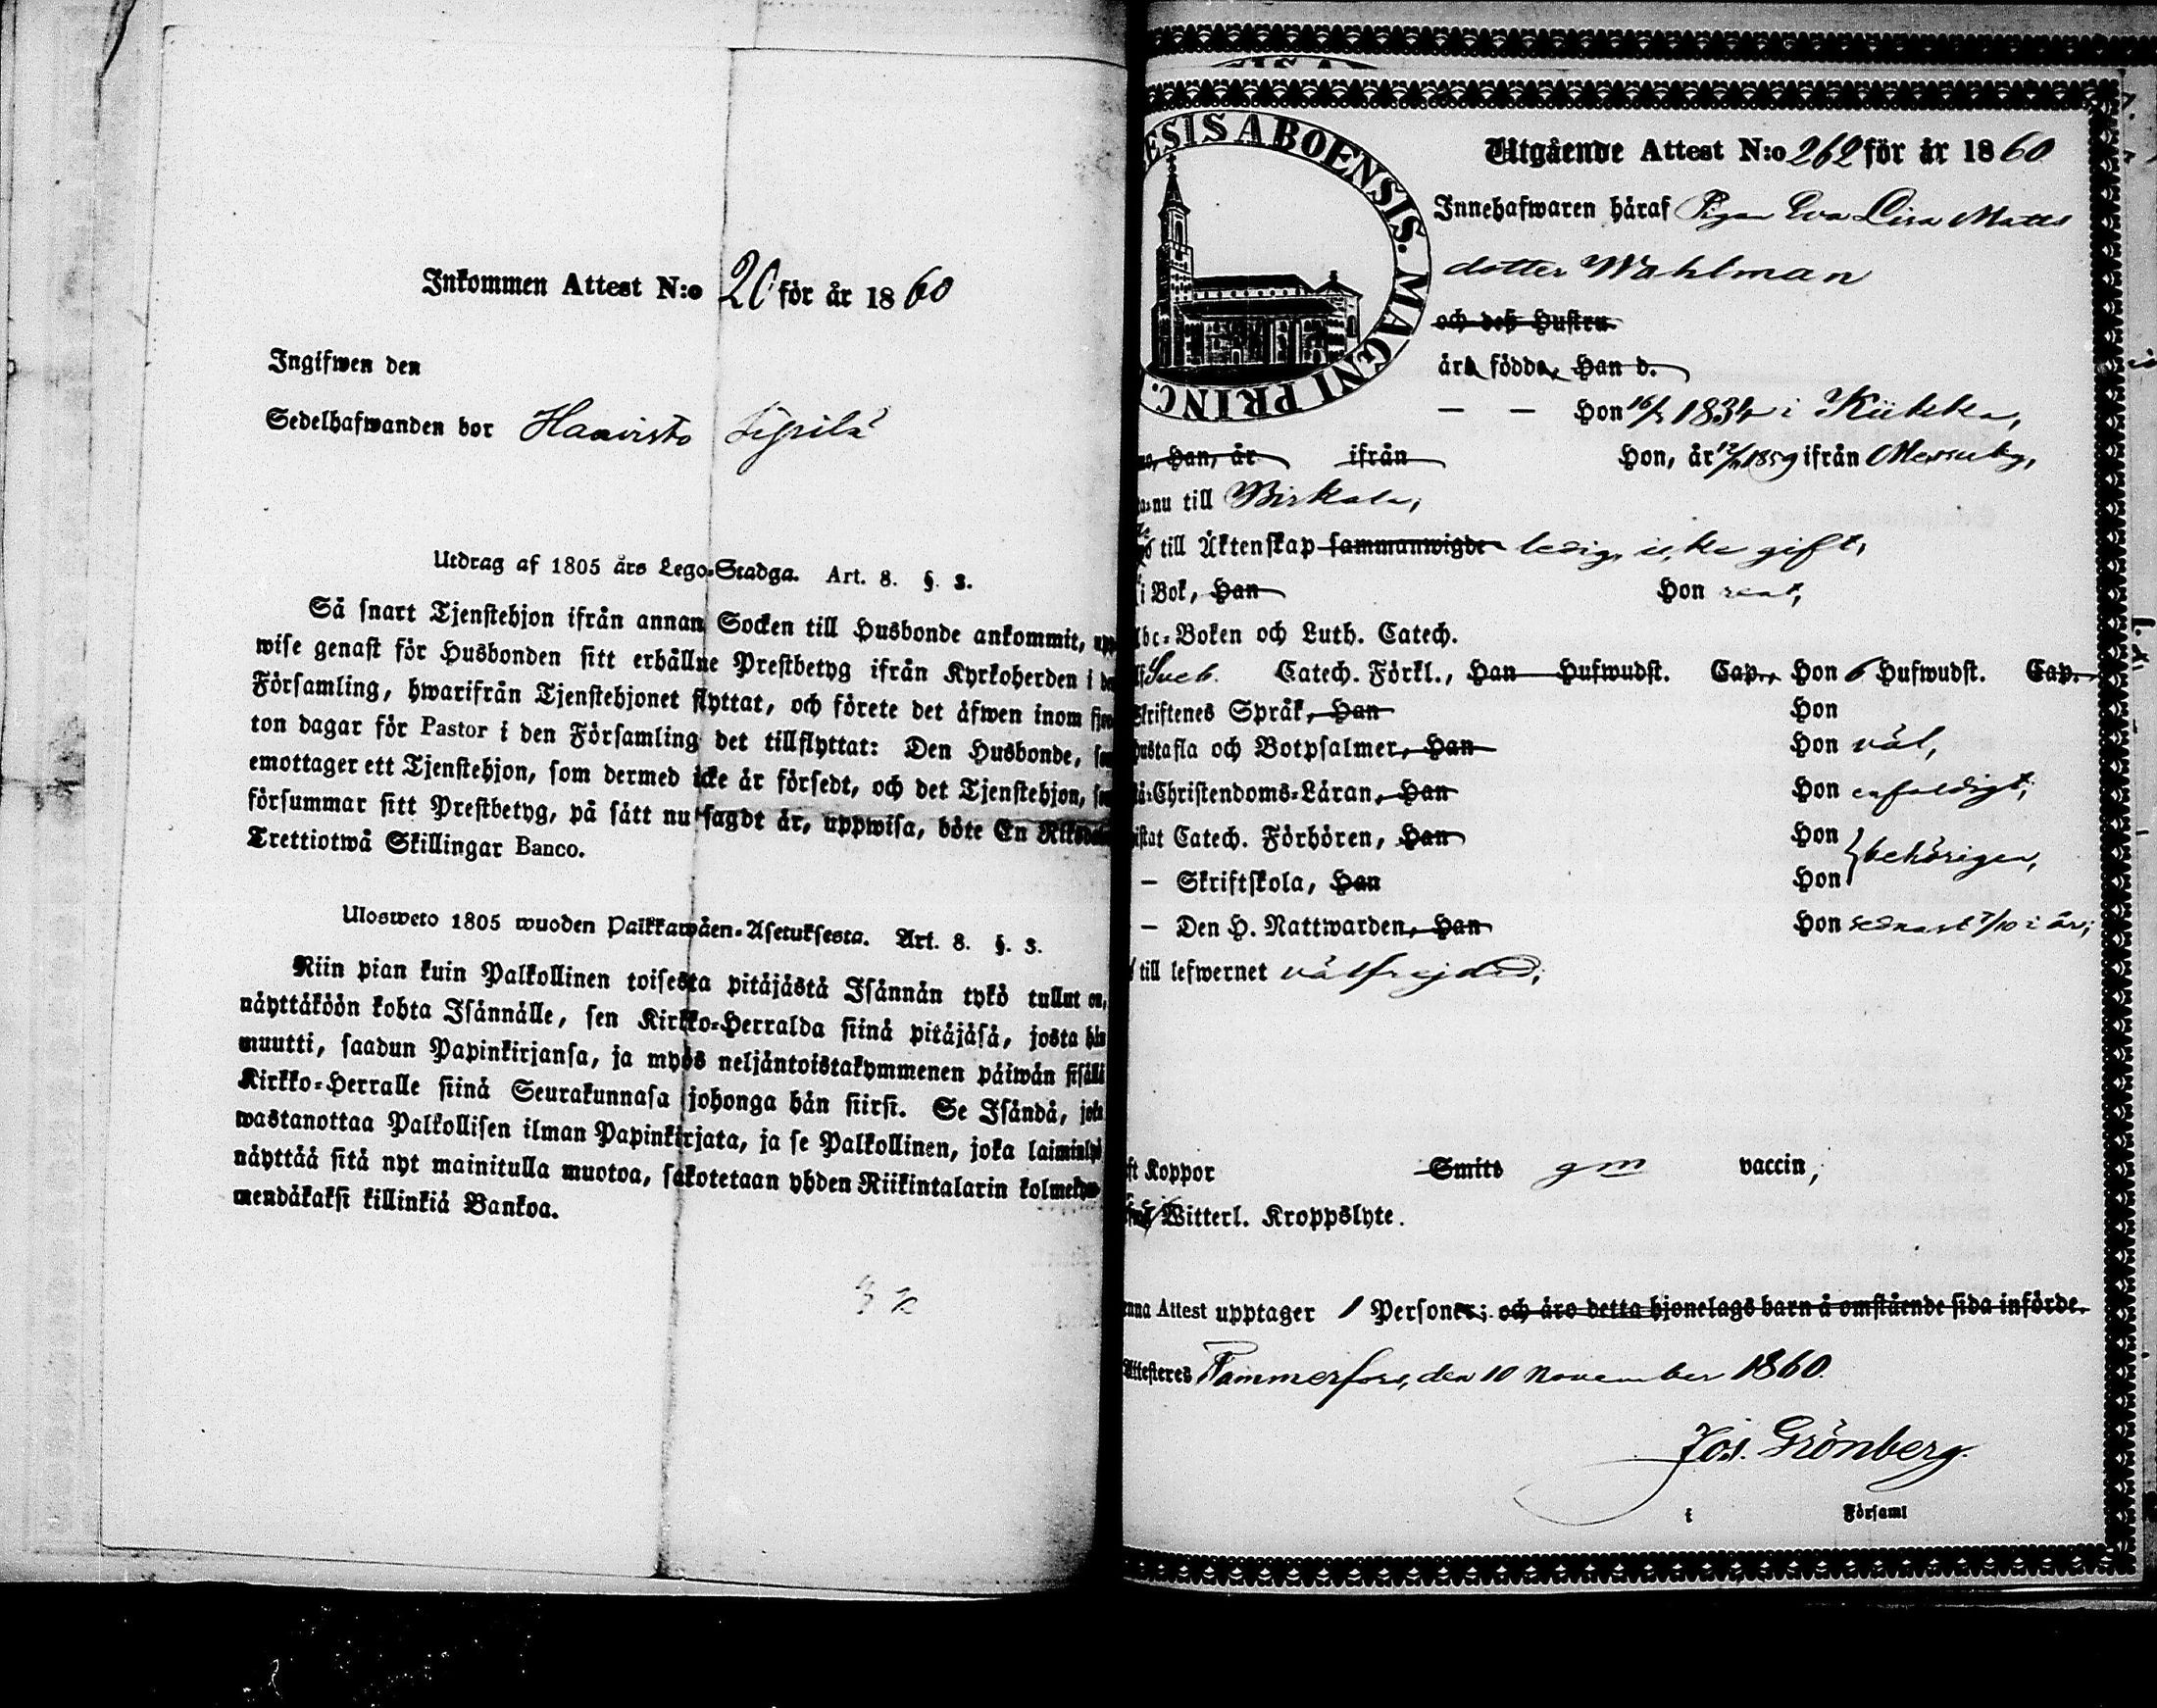 Inkommen Attest N:o 20 för år 1860
Ingifwen den
Sedelhafwanden bor Haavisto
Utdrag af 1805 års Lego-Stadga. Art. 8. §. 3.
Så snart Tjenstehjon ifrån annan Socken till Husbonde ankommit,
wise genast för Husbonden sitt erhållne Prestbetyg ifrån Kyrkoherden i
Församling, hwarifrån Tjenstehjonet flyttat, och förete det äfwen inom
ton dagar för Pastor i den Församling det tillflyttat: Den Husbonde,
emottager ett Tjenstehjon, som dermed icke är försedt, och det Tjenstehjon,
försummar sitt Prestbetyg, på sätt nu sagdt är, uppwisa, böte En
Trettiotwå Skillingar Banco.
Ulosweto 1805 wuoden Palkkawäen-Asetuksesta. Art. 8. §. 3.
Niin pian kuin Palkollinen toisesta pitäjästä Isännän tykö tullut on,
näyttäköön kohta Isännälle, sen Kirkko-Herralda siinä pitäjäsä, josta hän
muutti, saadun Papinkirjansa, ja myös neljäntoistakymmenen päiwän sisällä
Kirkko-Herralle siinä Seurakunnasa johonga hän siirsi. Se Isändä, joka
wastanottaa Palkollisen ilman Papinkirjata, ja se Palkollinen, joka laiminlyö
näyttää sitä nyt mainitulla muotoa, sakotetaan yhden Riikintalarin kolmekym-
mendäkaksi killinkiä Bankoa.
ESIS ABOENSIS. MAGNI PRINC.
Utgående Attest N:o 262 för år 1860
Innehafwaren häraf Pigan Eva Lisa Matts
dotter Wahlman
och deß Hustru
äro födde, Han d.
— — Hon 1834 i Kiikka,
Han, år ifrån Hon, år 1859 ifrån Messuby,
nu till Birkala,
till Äktenskap sammanwigde ledig, icke gift,
i Bok, Han Hon rent,
Abc-Boken och Luth. Catech.
Sveb. Catech. Förkl., Han Hufwudst. Cap., Hon 6 Hufwudst. Cap.
Skriftenes Språk, Han Hon
Hustafla och Botpsalmer, Han Hon väl,
Christendoms-Läran, Han Hon enfaldigt,
Catech. Förhören, Han Hon
— Skriftskola, Han Hon } behörigen,
— Den H. Nattwarden, Han Hon sednast 7/10 i år;
till lefwernet välfrejdad;
Koppor Smitt gm vaccin,
Witterl. Kroppslyte.
Attest upptager 1 Personer; och äro detta hjonelags barn å omstående sida införde.
Attesteres Tammerfors, den 10 November 1860.
Jos. Grönberg.
i Församl